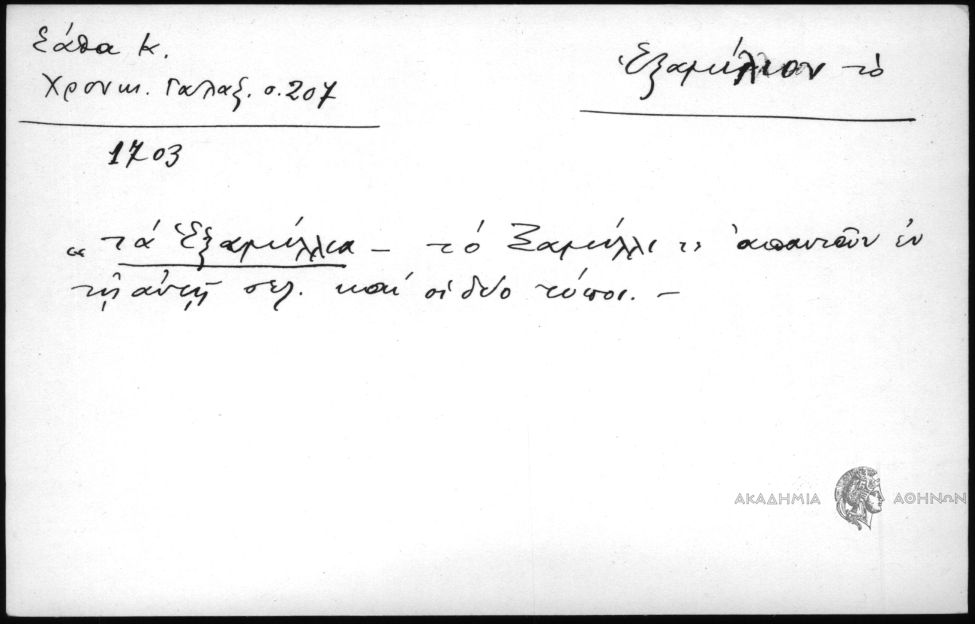 Σάθα Κ.
Χρονικ. Γαλαξ. σ. 207
Ἑξαμίλιον τὸ
1703
« τά Ἑξαμίλλια – τό Ξαμίλλι » ἀπαντοῦν ἐν
τῇ αὐτῇ σελ. καί οἱ δύο τύποι. –
ΑΚΑΔΗΜΙΑ ΑΘΗΝΩΝ